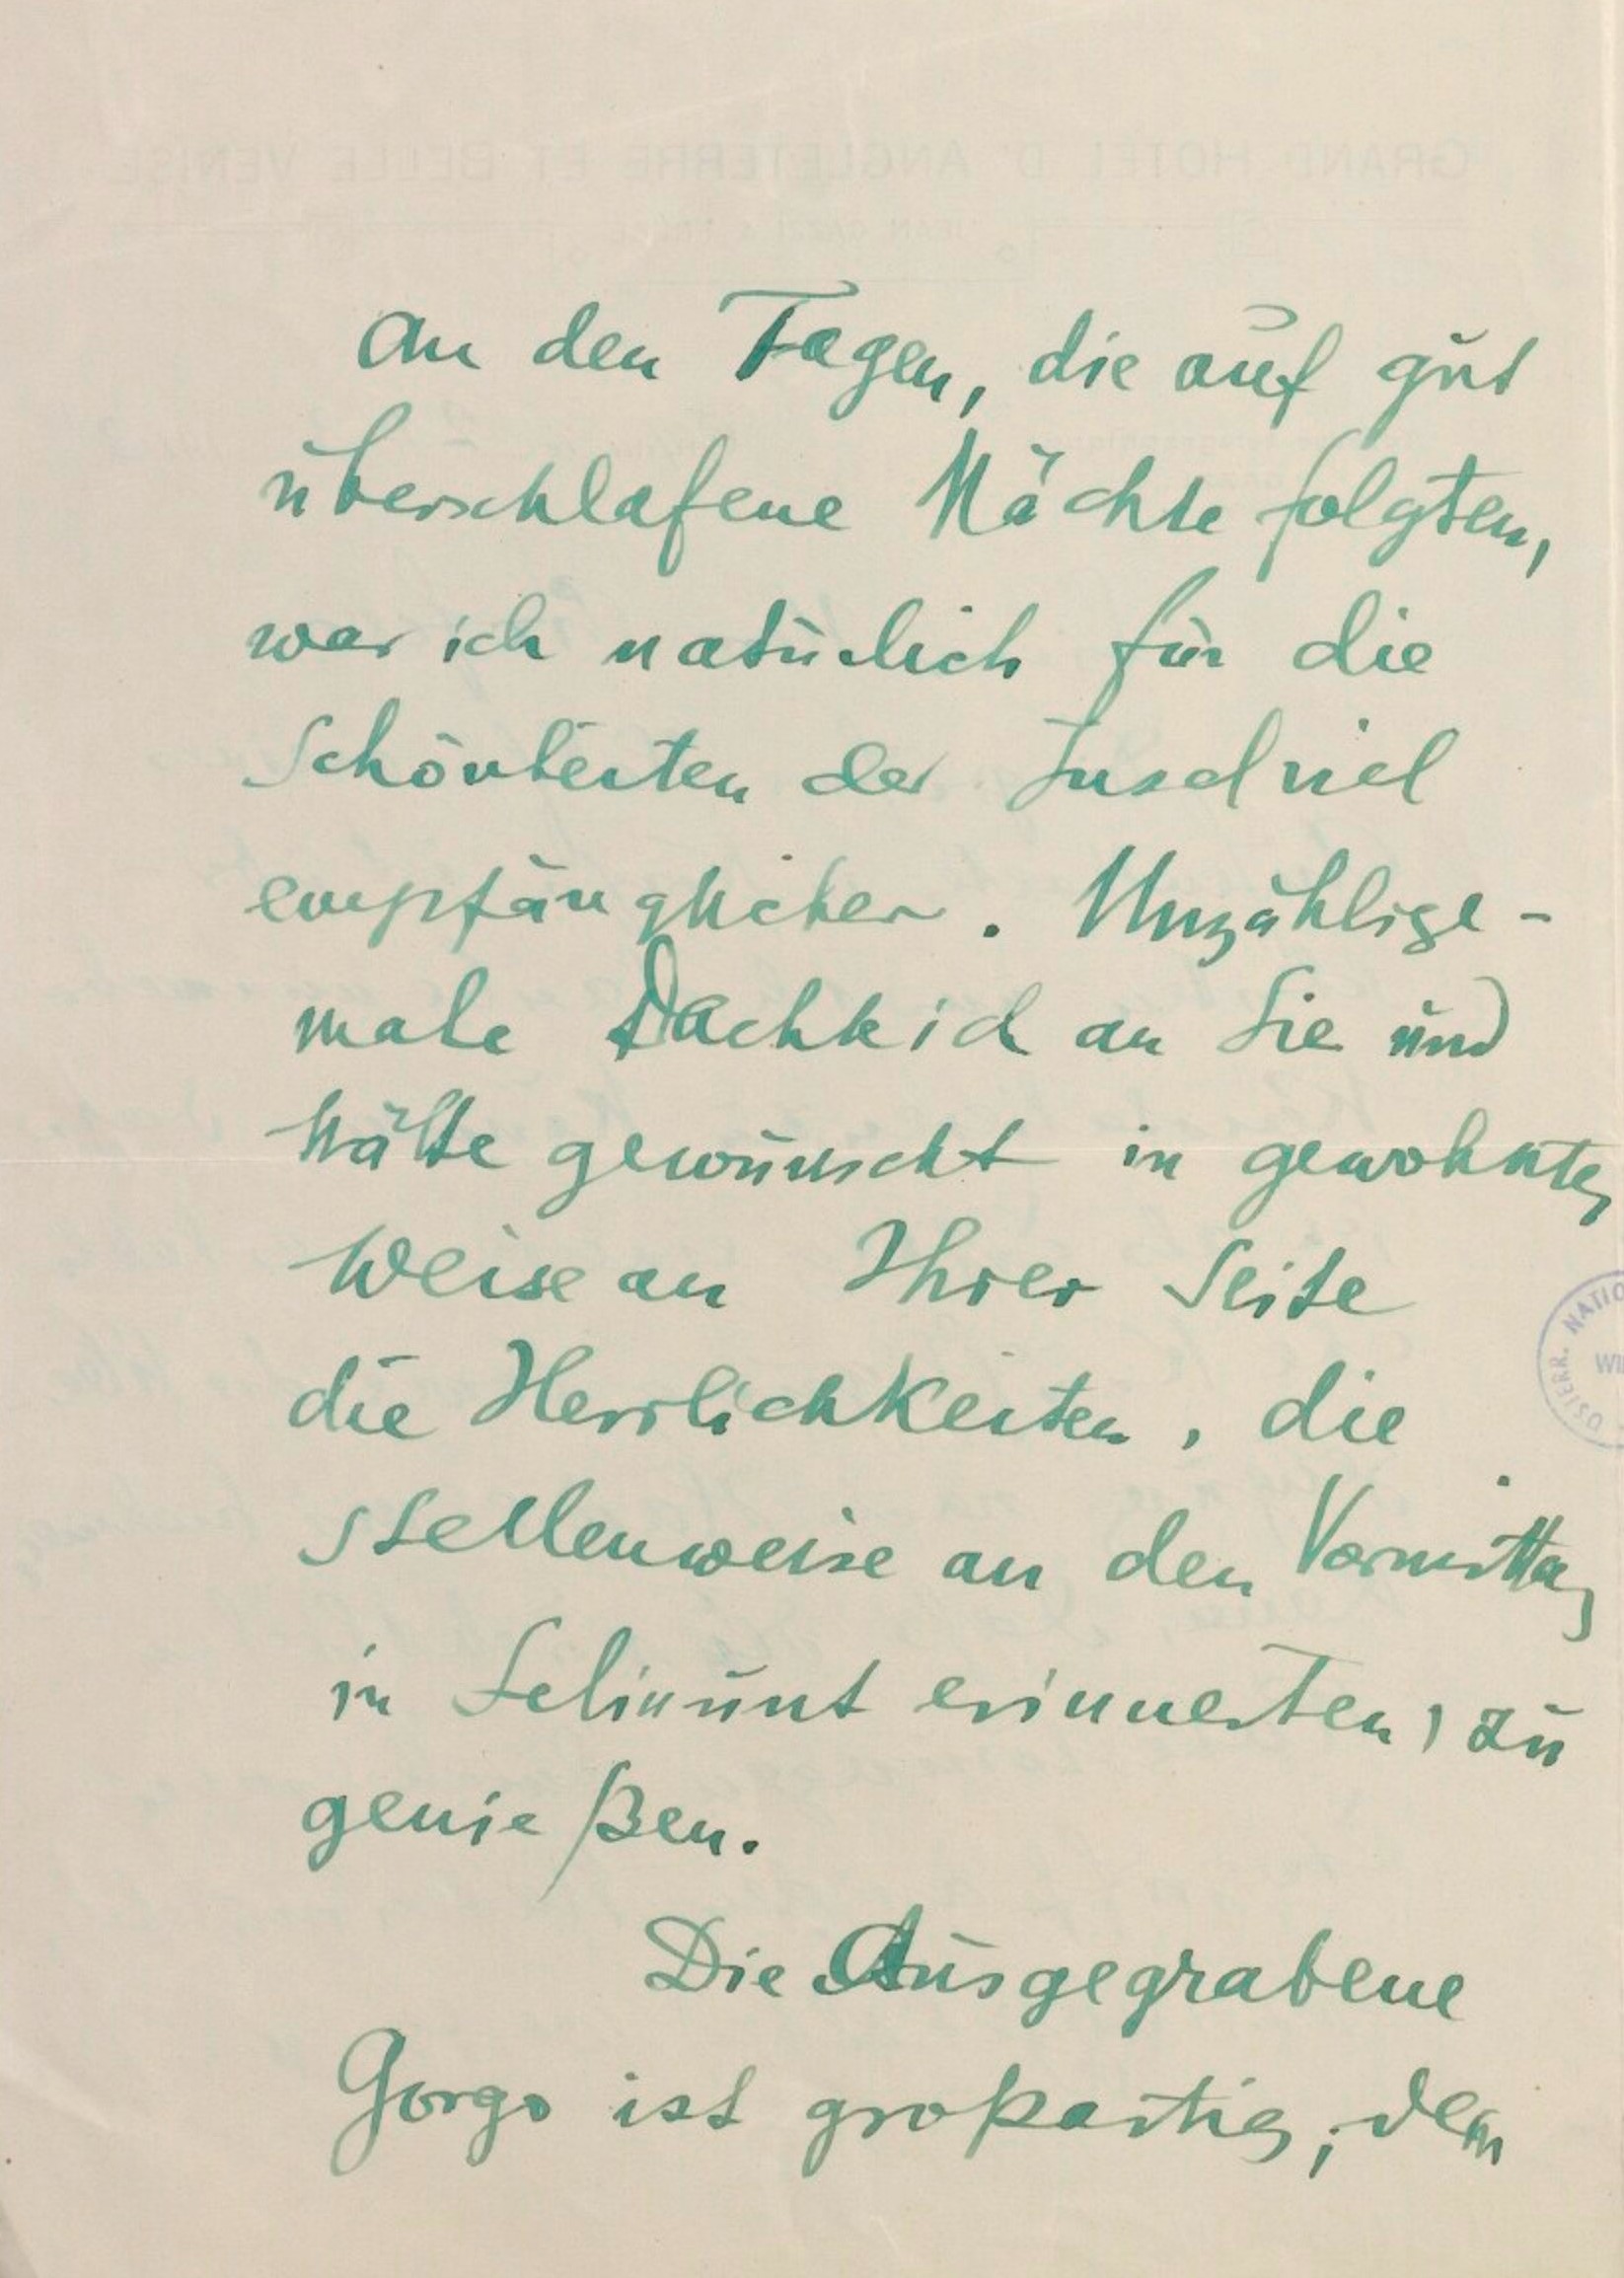 GRAND HOTEL D'ANGLETERRE ET BELLE VENISE
An den Tagen, die auf gut
überschlafene Nächte folgten,
war ich natürlich für die
Schönheiten der Insel viel
empfänglicher. Unzählige-
male Dachte ich an Sie und
hätte gewünscht in gewohnter
Weise an Ihrer Seite
die Herrlichkeiten, die
stellenweise an den Vormittag
in Selinunt erinnerten, zu
genießen.
Die Ausgegrabene
Gorgo ist großartig, dem
ÖSTERR. NATIO